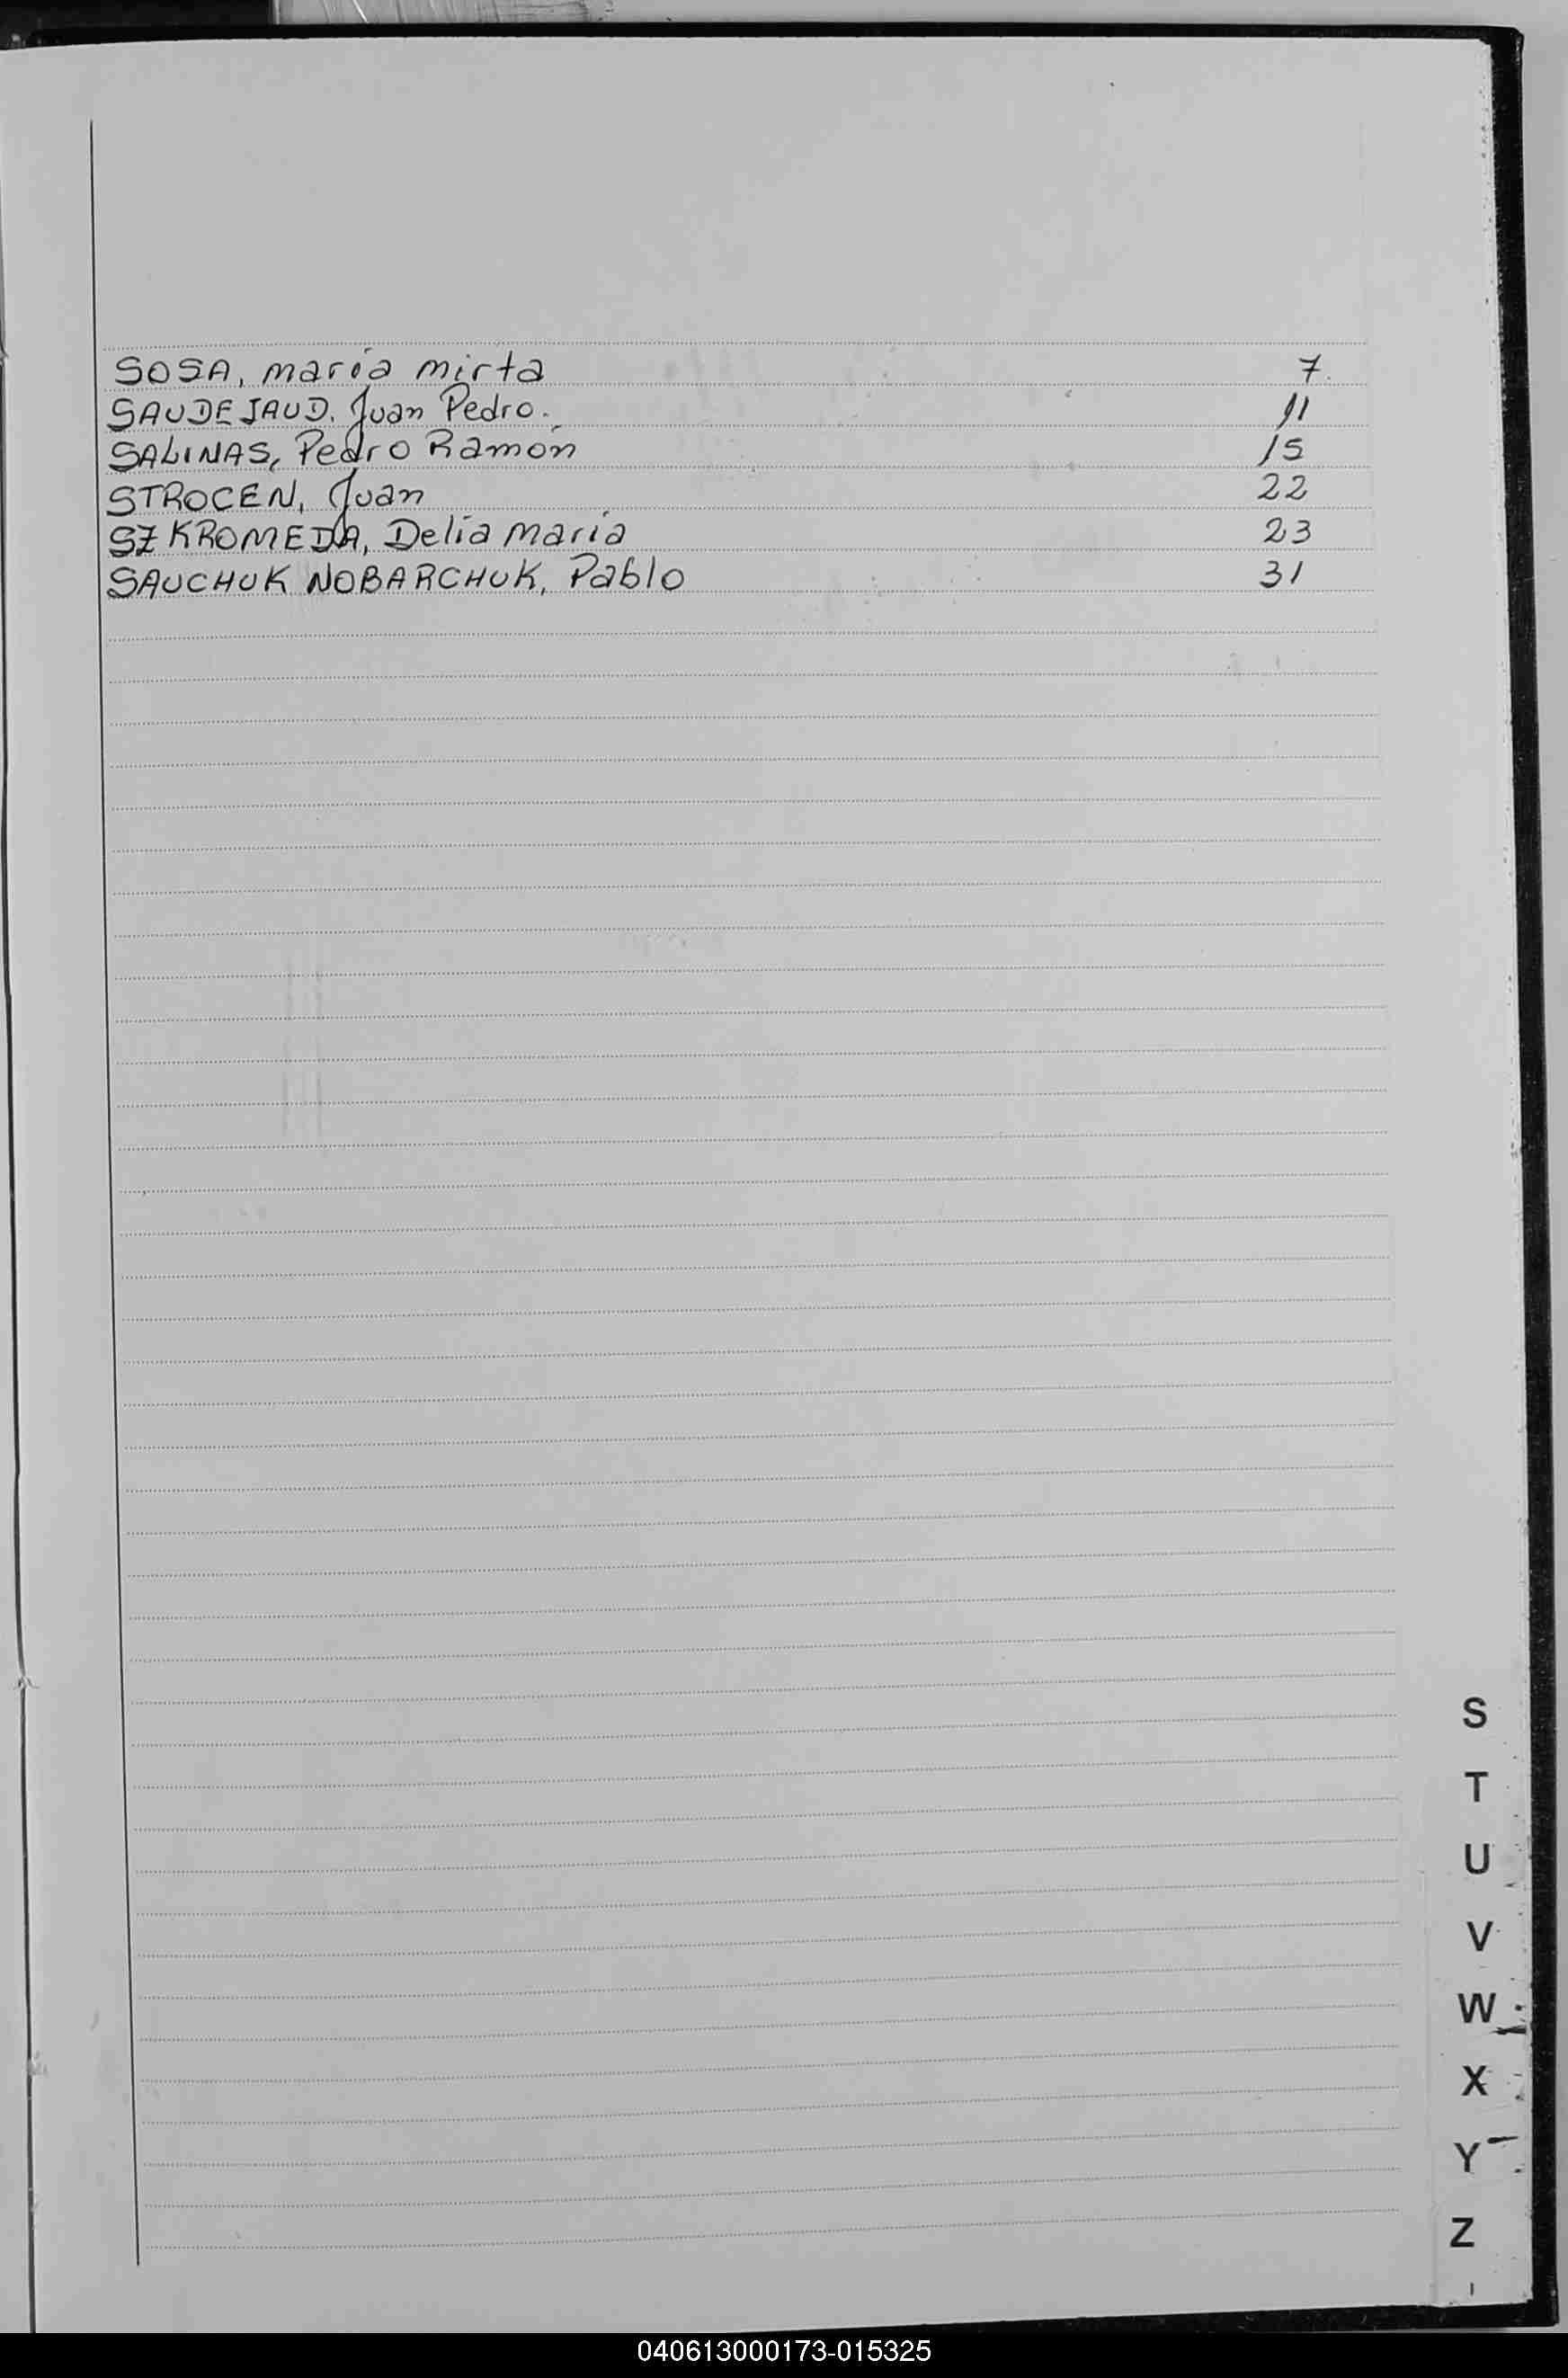 SOSA, maría mirta 7.
SAUDEJAUD, Juan Pedro. 11
SALINAS, Pedro Ramón 15
STROCEN, Juan 22
SZKROMEDA, Delia maría 23
SAUCHUK NOBARCHUK, Pablo 31
S
T
U
V
W
X
Y
Z
040613000173-015325